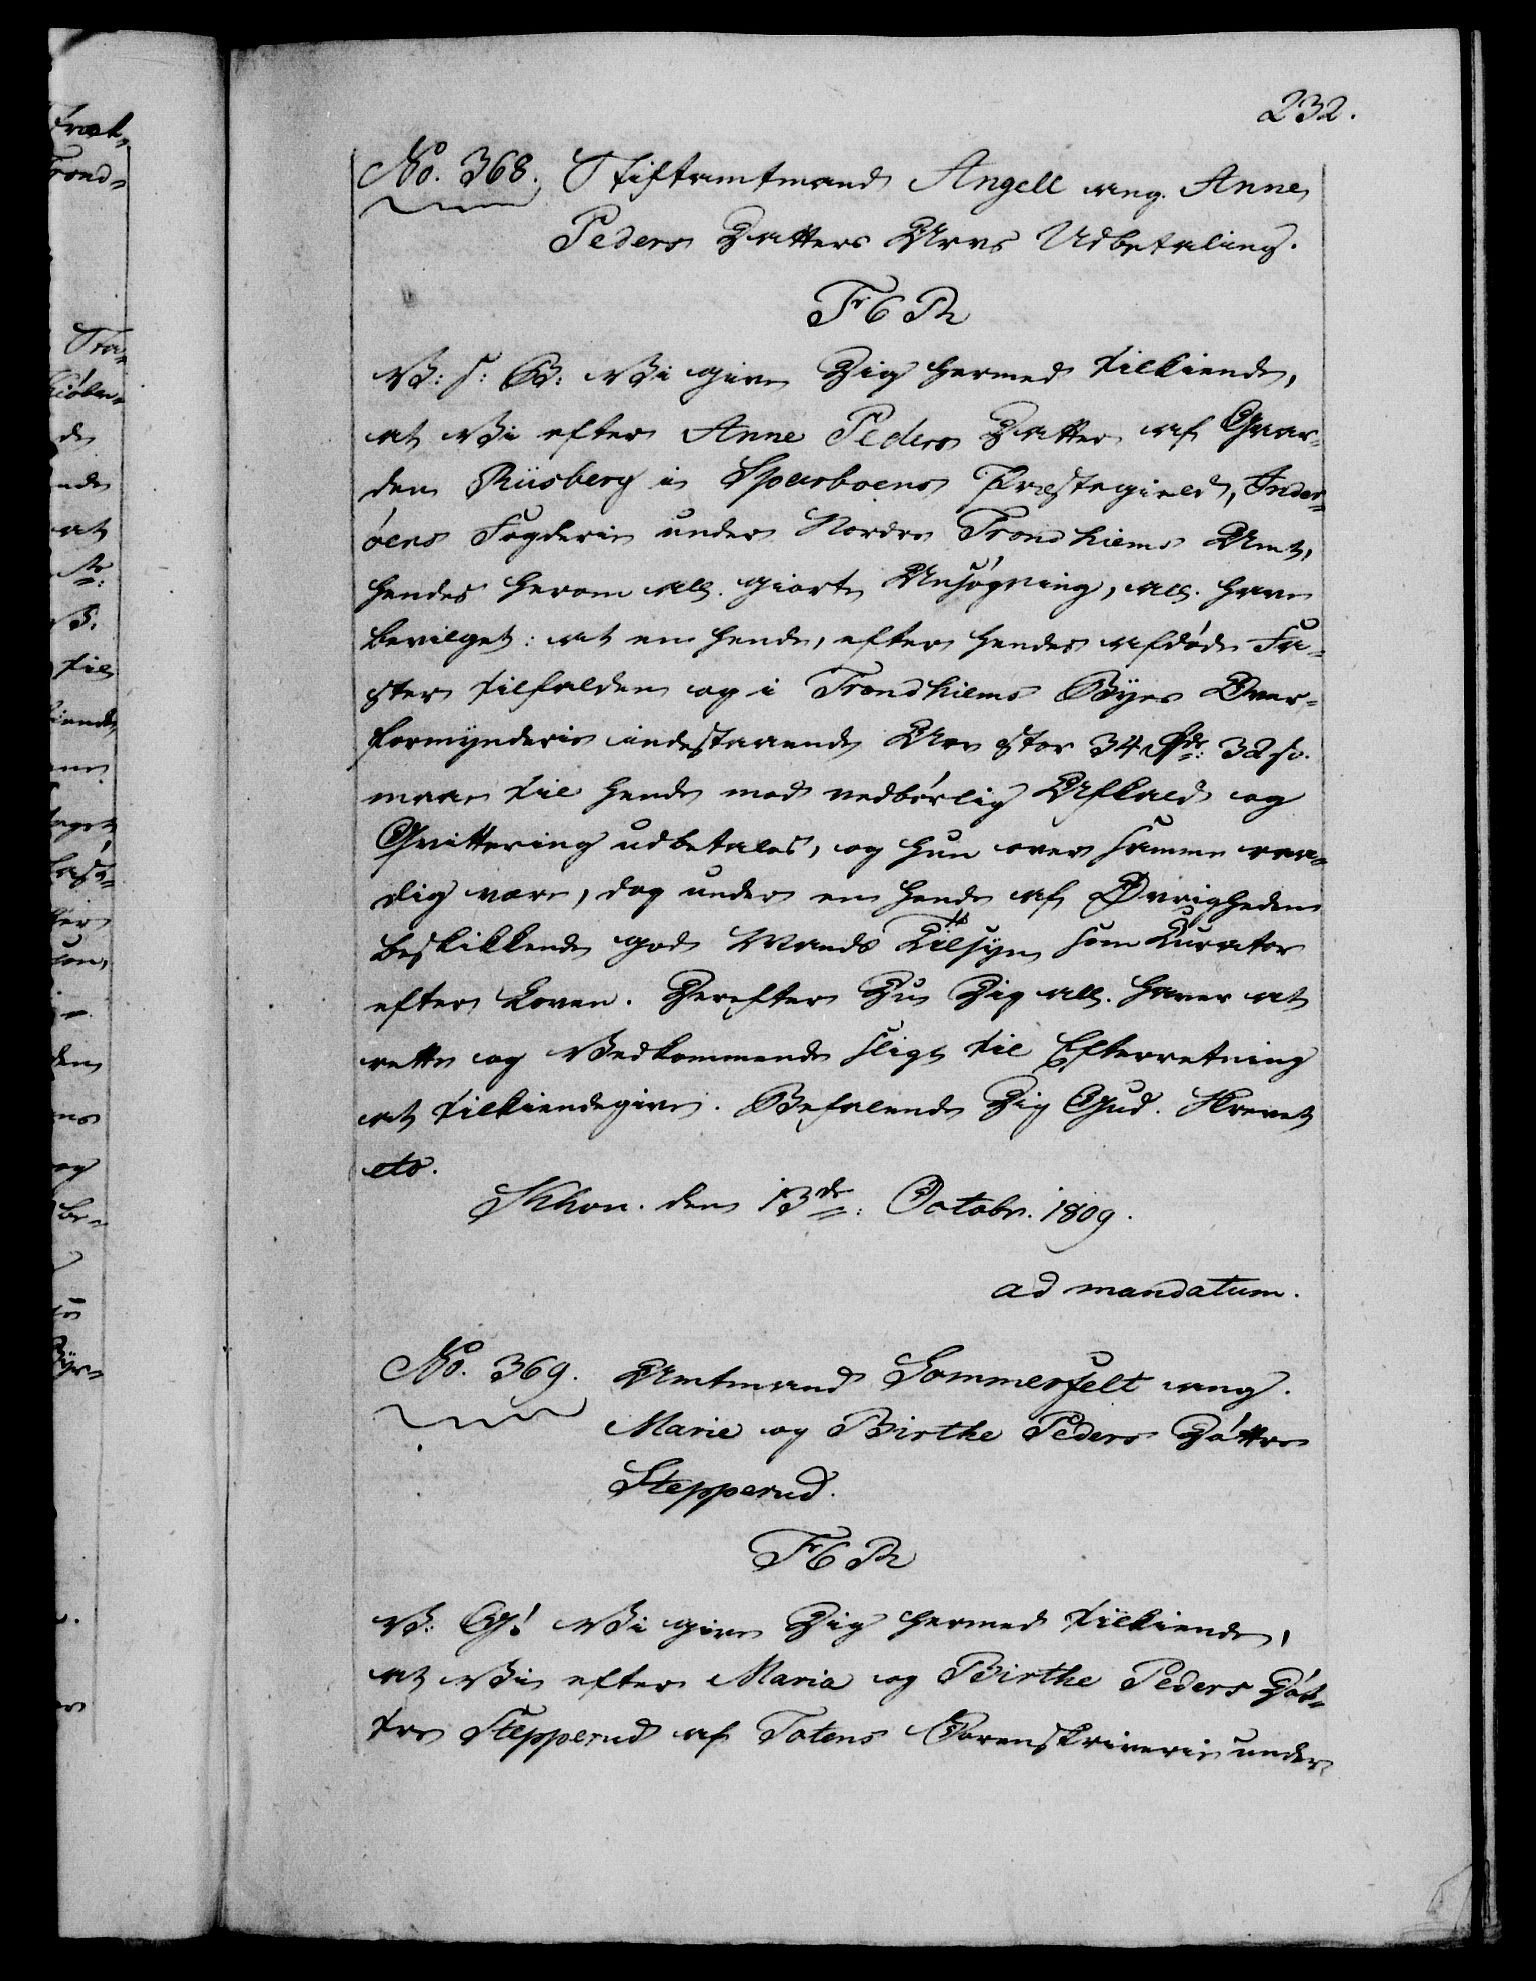 232.
No. 368. Stiftamtmand Angell ang. Anne
Peders Datters Arvs Udbetaling.
Fr 6 R
V: S: G: Vi give Dig hermed tilkiende,
at Vi efter Anne Peders Datter af Gaar-
den Riisberg i Sparboens Præstegield, Inder-
öens Fogderie under Nordre Trondhiems Amt,
hendes herom all. giorte Ansögning, all. have
bevilget: at en hende, efter hendes afdöde Fa-
ster tilfalden og i Trondhiems Byes Over-
formynderie indestaaende Arv stor 34 Rdr: 32 s.
maae til hende mod vedbörlig Afkald og
Qvittering udbetales, og hun over samme raa-
dig være, dog under en hende af Övrigheden
beskikkende god Mands Tilsyn som Curator
efter Loven. Derefter Du Dig all. haver at
rette og Vedkommende sligt til Efterretning
at tilkiendegive. Befalende Dig Gud. Skrevet
etc.
Khavn. den 13de: Octobr. 1809.
ad mandatum.
No. 369. Amtmand Sommerfelt ang.
Marie og Birthe Peders Döttre
Stepperud.
Fr 6 R
V: G! Vi give Dig hermed tilkiende,
at Vi efter Maria og Birthe Peders Döt-
tre Stepperud af Totens Sorenskriverie under